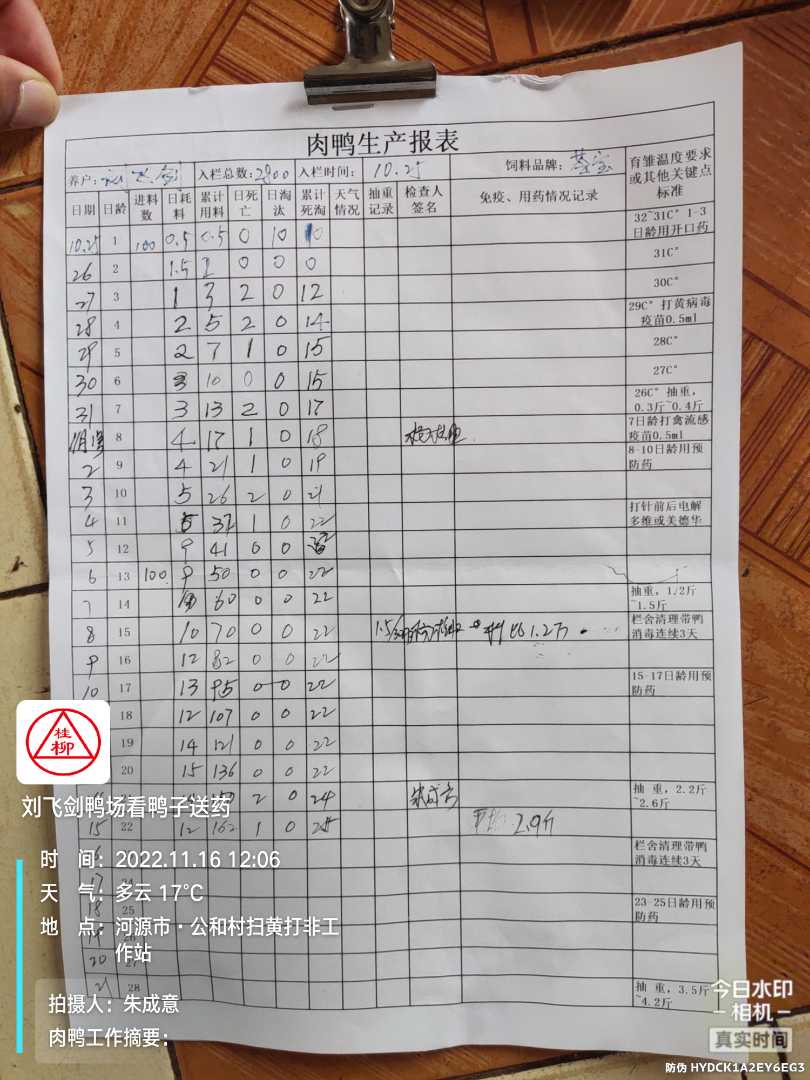 肉鸭生产报表
养户: 入栏总数:2900 入栏时间: 10.25 饲料品牌: 育雏温度要求或其他关键点标准
日期 日龄 进料数 日耗料 累计用料 日死亡 日淘汰 累计死淘 天气情况 抽重记录 检查人签名 免疫、用药情况记录
10.25 1 100 0.5 0.5 0 10 10 32~31C° 1-3日龄用开口药
26 2 1.5 2 0 0 0 31C°
27 3 1 3 2 0 12 30C°
28 4 2 5 2 0 14 29C° 打黄病毒疫苗0.5ml
29 5 2 7 1 0 15 28C°
30 6 3 10 0 0 15 27C°
31 7 3 13 2 0 17 26C° 抽重，0.3斤~0.4斤
8 4 17 1 0 18 7日龄打禽流感疫苗0.5ml
2 9 4 21 1 0 19 8-10日龄用预防药
3 10 5 26 2 0 21
4 11 1 0 22 打针前后电解多维或美德华
5 12 9 41 0 0
6 13 100 9 50 0 0 22
7 14 60 0 0 22 抽重，1.2斤~1.5斤
8 15 10 70 0 0 22 栏舍清理带鸭消毒连续3天
9 16 12 82 0 0 22
10 17 13 95 0 0 22 15-17日龄用预防药
18 12 107 0 0 22
19 14 121 0 0 22
20 15 136 0 0 22
2 0 24 朱成意 抽重，2.2斤~2.6斤
15 22 12 162 1 0 25 2.9斤
栏舍清理带鸭消毒连续3天
17
18 25 23-25日龄用预防药
19
20
21 28 抽重，3.5斤~4.2斤
桂柳
刘飞剑鸭场看鸭子送药
时 间：2022.11.16 12:06
天 气：多云 17℃
地 点：河源市·公和村扫黄打非工
作站
拍摄人：朱成意
肉鸭工作摘要：
今日水印
相机
真实时间
防伪 HYDCK1A2EY6EG3